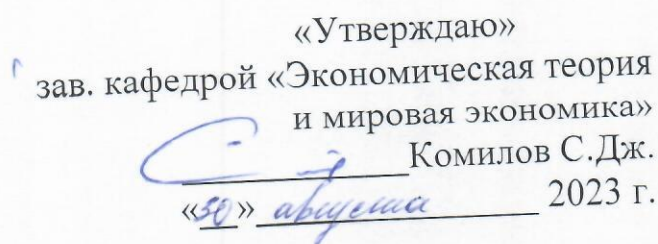 «Утверждаю»
зав. кафедрой «Экономическая теория
и мировая экономика»
Комилов С.Дж.
«30» августа 2023 г.